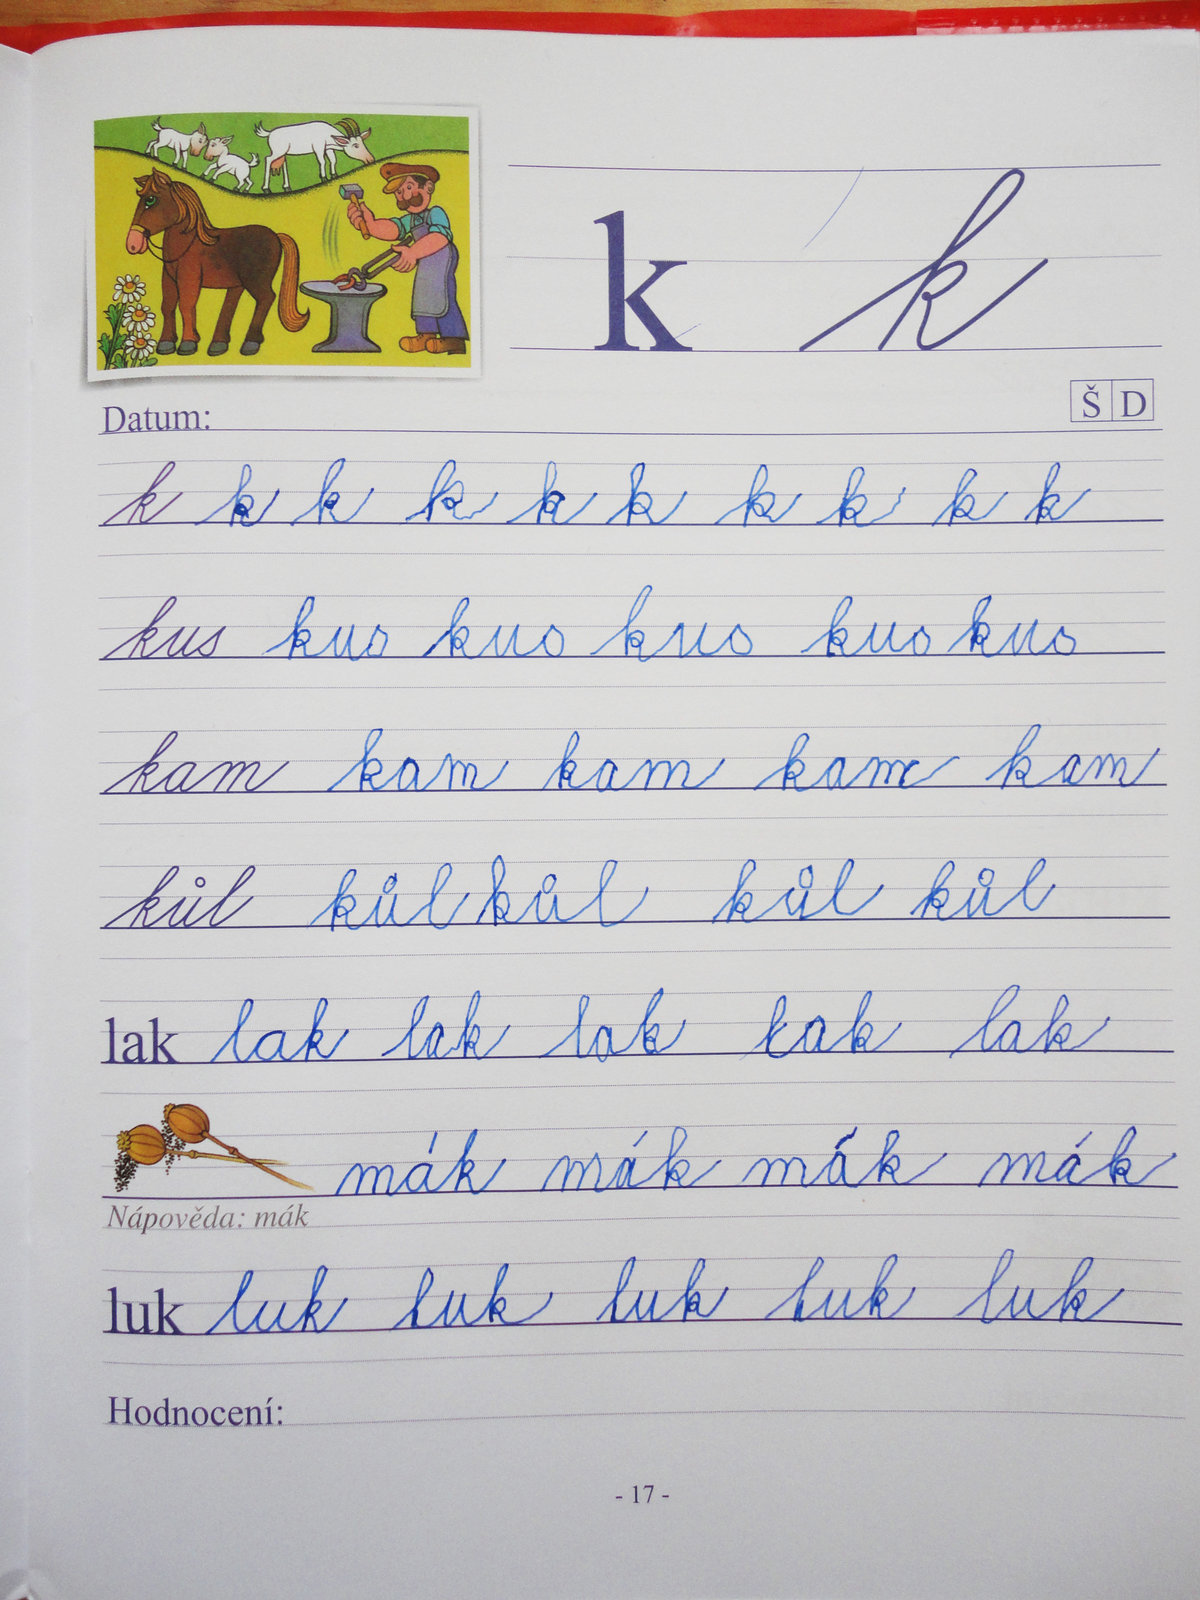 k k
Datum: Š D
k k k k k k k k k k
kus kus kus kus kus kus
kam kam kam kam kam
kůl kůl kůl kůl kůl
lak lak lak lak lak lak
mák mák mák mák
Nápověda: mák
luk luk luk luk luk luk
Hodnocení:
- 17 -